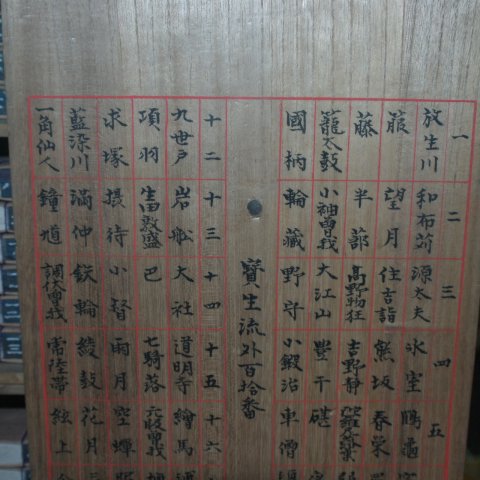 一 二 三 四 五
放生川 和布苅 源太夫 氷室 鶴亀
箙 望月 住吉詣 熊坂 春栄
藤 半蔀 高野物狂 吉野静
籠太鼓 小袖曽我 大江山 豊干 碪
國栖 輪藏 野守 小鍛冶 車僧
寶生流外百拾番
十二 十三 十四 十五 十六
九世戸 岩舩 大社 道明寺 繪馬
項羽 生田敦盛 巴 七騎落 元服曽我
求塚 摂待 小督 雨月 空蟬
藍染川 満仲 鉄輪 綾鼓 花月
一角仙人 鐘馗 調伏曽我 常陸帯 絃上